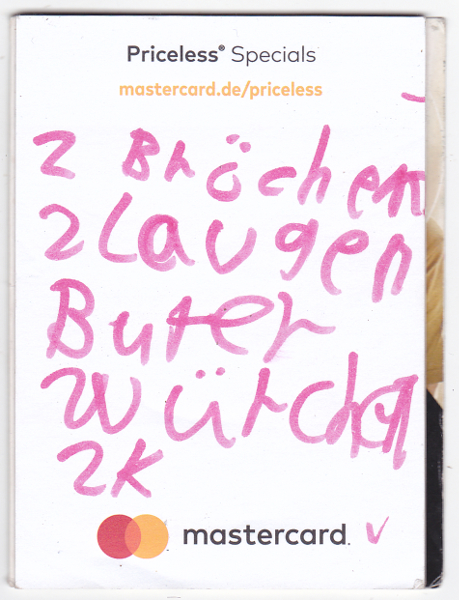 Priceless® Specials
mastercard.de/priceless
2 Bröchen
2 Laugen
Buter
Würchen
2K
mastercard.